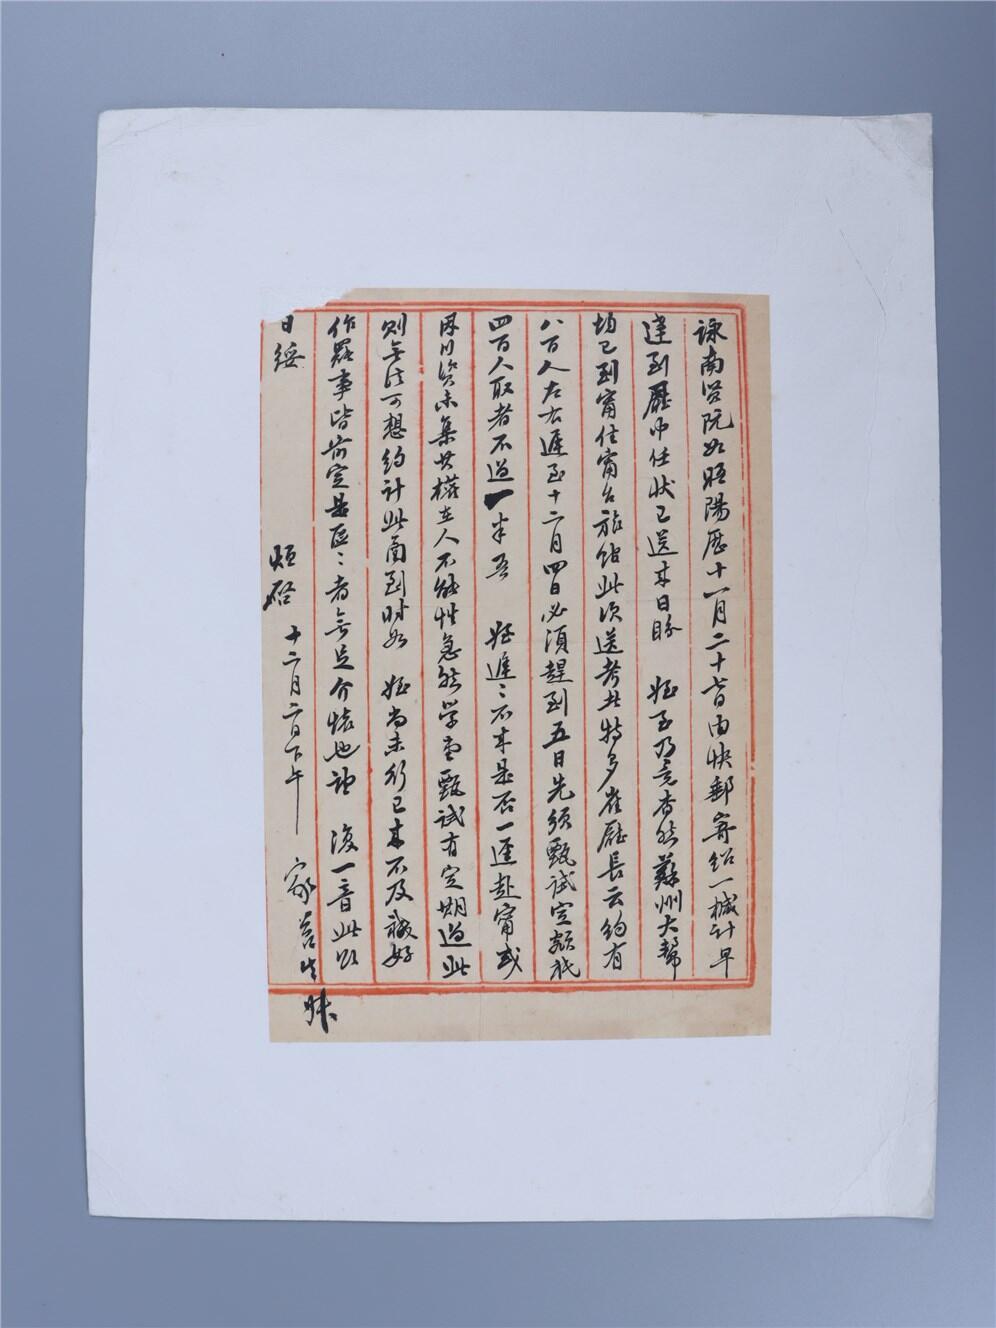 詠南賢阮如晤陽歷十一月二十七日由快郵寄紹一械計早
達到廳中任狀已送來日盼　姪至乃竟杳然蘇州大幫
均已到甯住甯台旅館此次送考者特多崔廳長云約有
八百人左右遲至十二月四日必須趕到五日先須甄試定額祇
四百人取者不過一半吾　姪遲〻不來是否一逕赴甯或
因川資未集其權在人不能性急然學堂甄試有定期過此
則無法可想約計此函到時如　姪尚未行已來不及祇好
作罷事皆前定是區〻者無足介懷也望　復一音此以
日綏
　烜啓　十二月二日下午　家